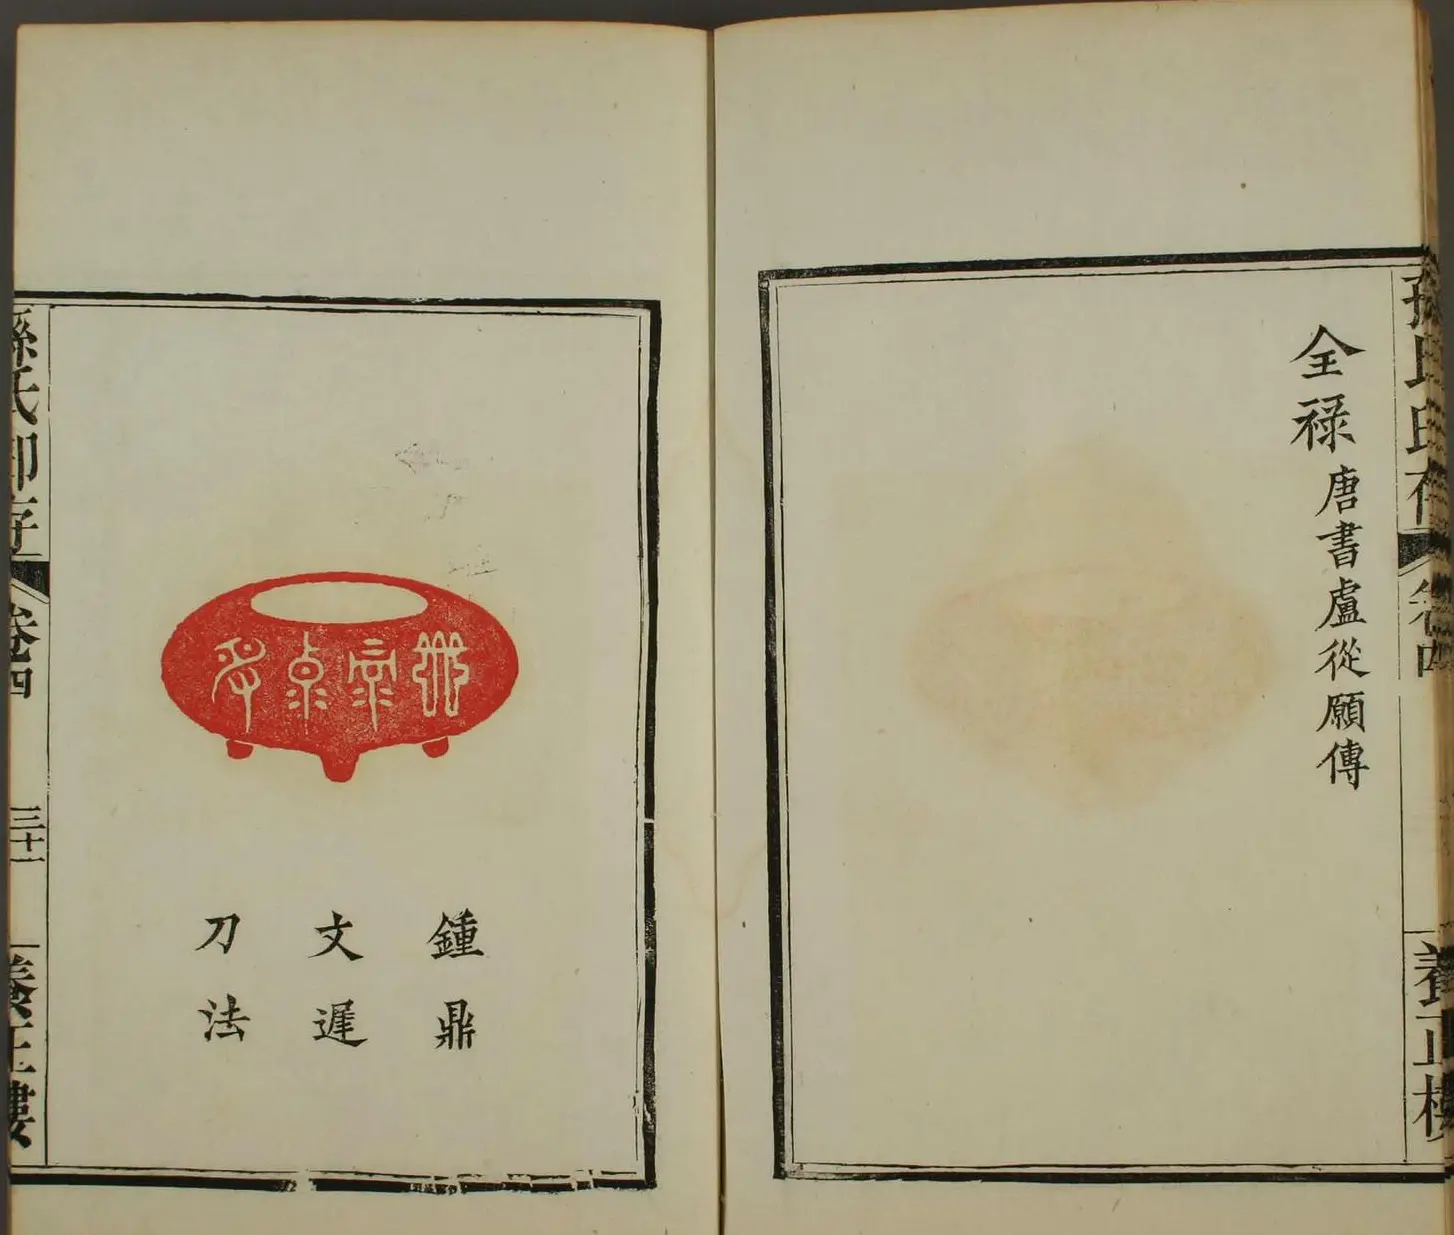 孫氏印存
卷四
養正樓
全祿唐書盧從愿傳
鍾鼎
文遲
刀法
孫氏印存
卷四
三十一
養正樓